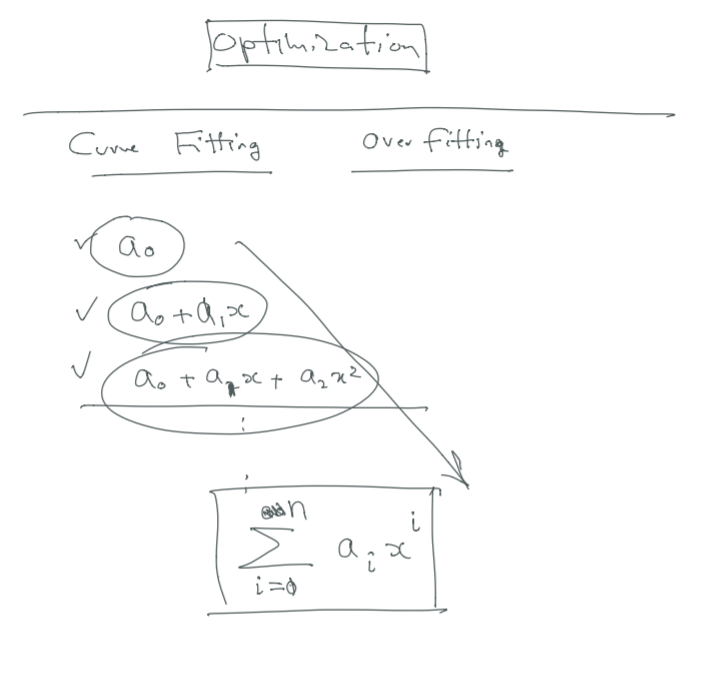 Optimization
Curve Fitting
Over fitting
a₀
a₀ + a₁x
a₀ + a₁x + a₂x²
⋮
n
∑ aᵢxⁱ
i=0